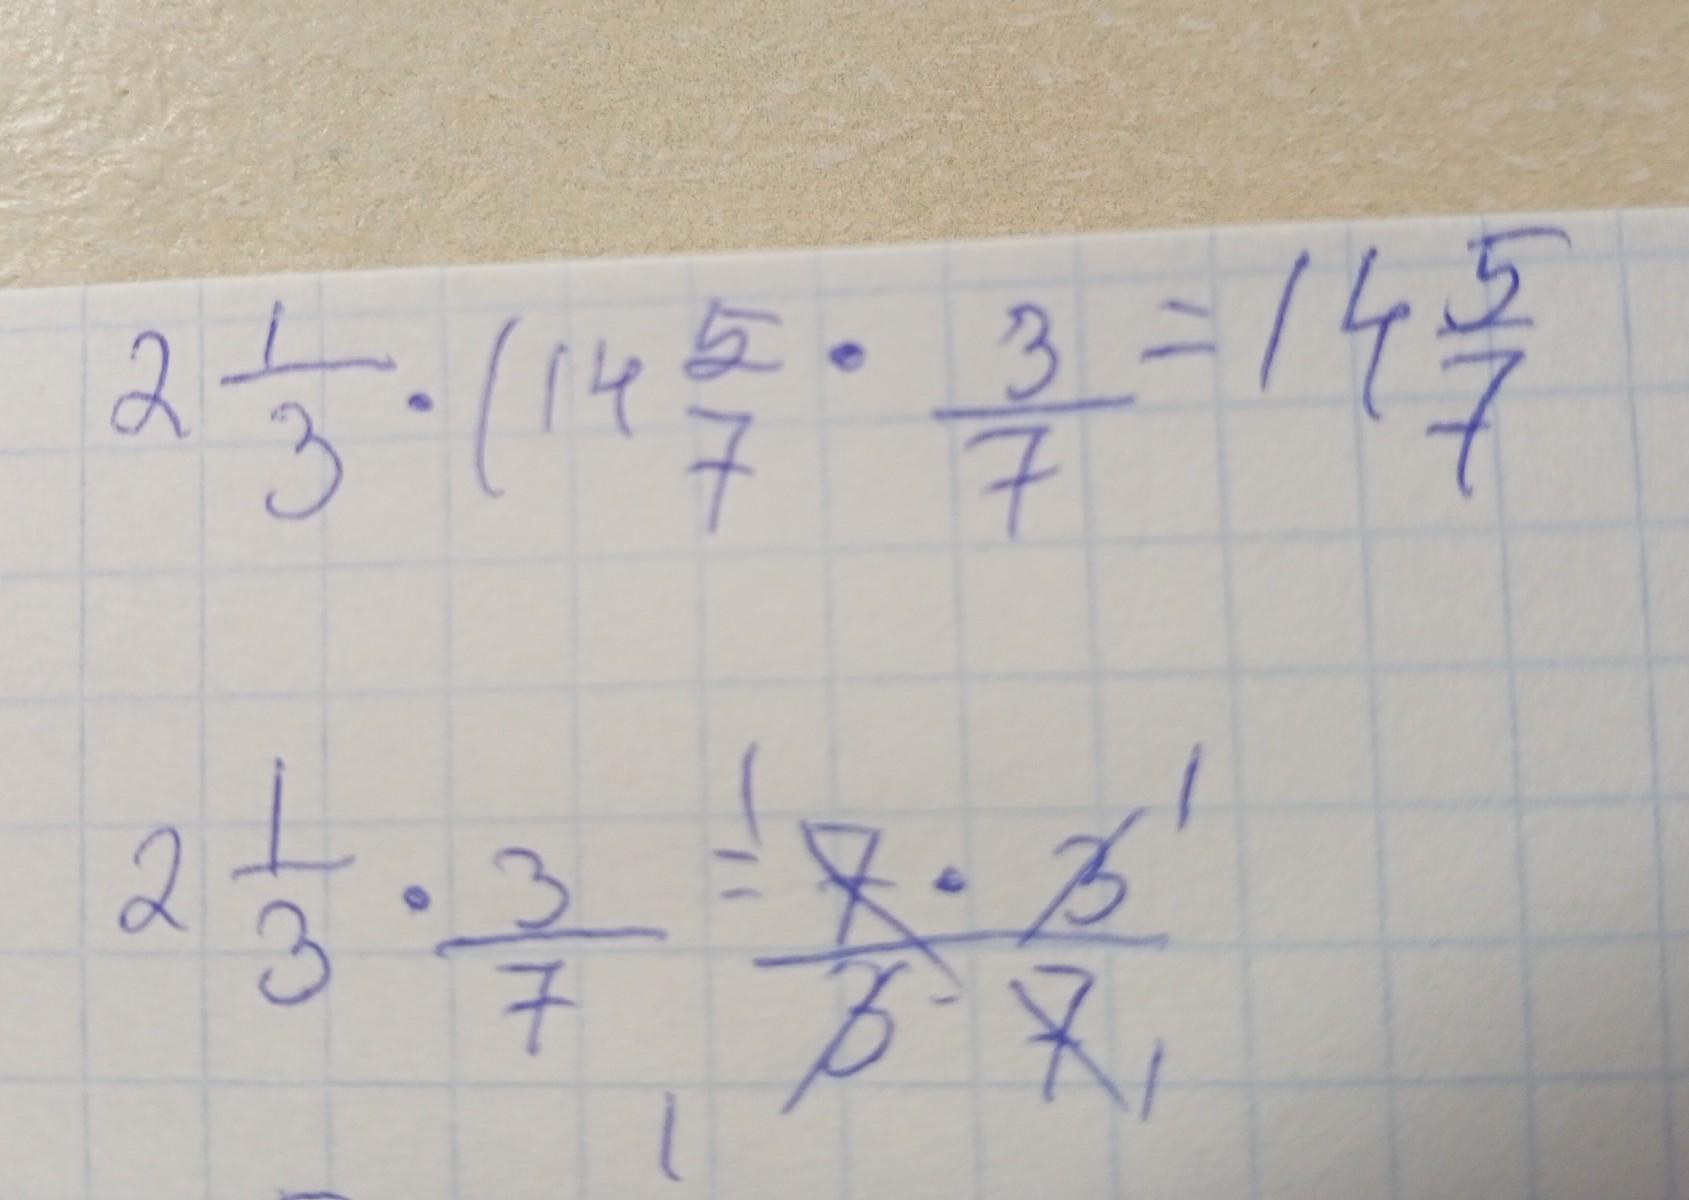 2 1/3 · (14 5/7 · 3/7 = 14 5/7
2 1/3 · 3/7 = 7 · 3 / 3 · 7
1 1
1 1